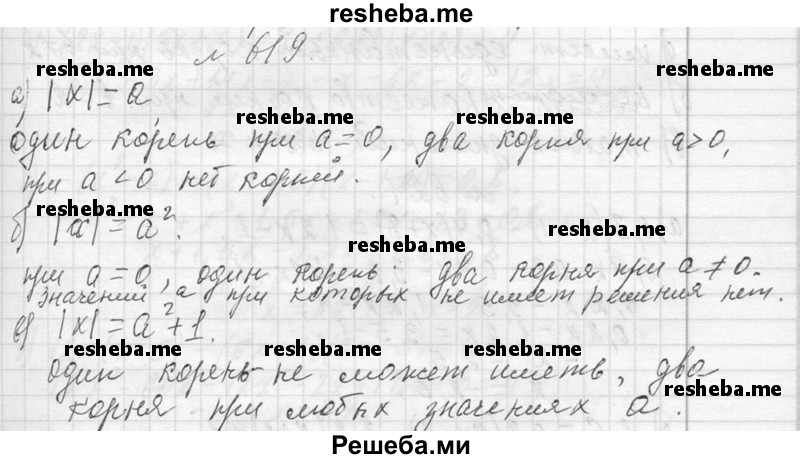 resheba.me
№ 619.
resheba.me resheba.me resheba.me
а) |x|=a
один корень при a=0, два корня при a>0,
при a<0 нет корней.
resheba.me resheba.me
б) |x|=a².
resheba.me
при a=0, один корень. два корня при a≠0.
Значений a при которых не имеет решения нет.
в) |x|=a²+1.
resheba.me resheba.me resheba.me
один корень не может иметь, два
resheba.me
корня при любых значениях a.
Решеба.ми